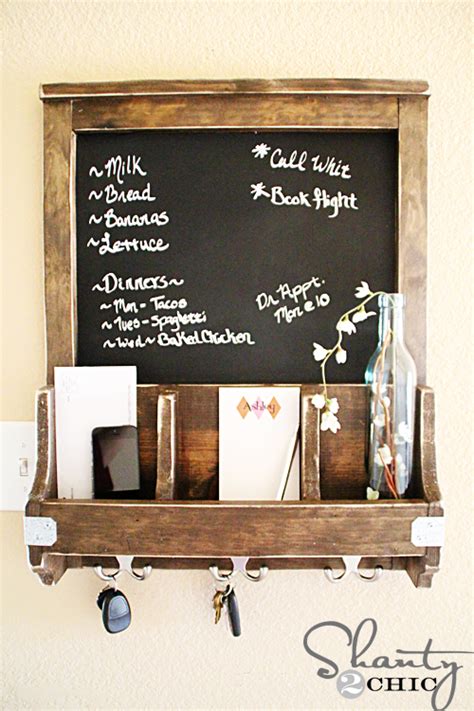 ~Milk
~Bread
~Bananas
~Lettuce
~Dinners~
~Mon- Tacos
~Tues- Spaghetti
~Wed~ Baked Chicken
*Call Whit
*Book flight
Dr. Appt.
Mon @ 10
Ashley
Shanty
2CHIC